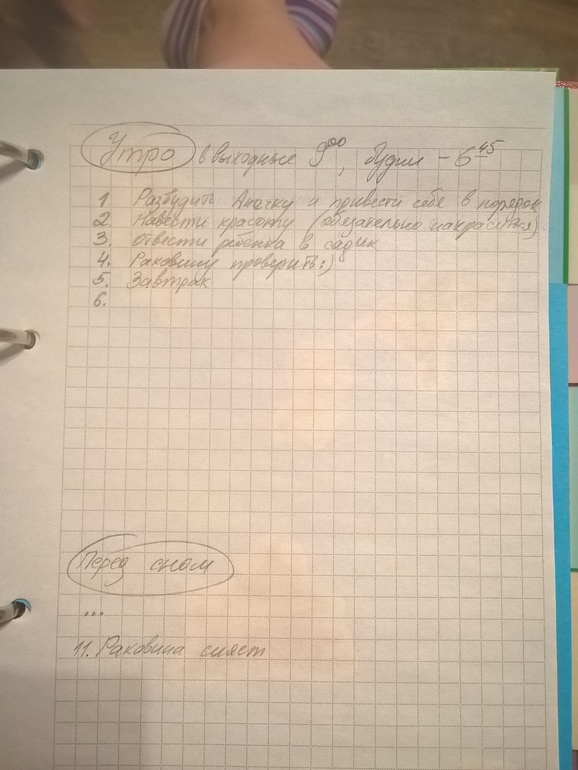 Утро в выходные 9⁰⁰, будни – 6⁴⁵
1 Разбудить Анечку и привести себя в порядок
2. Навести красоту (обязательно накраситься).
3. отвести ребёнка в садик
4. Раковину проверить:)
5. Завтрак
6.
Перед сном
...
11. Раковина сияет